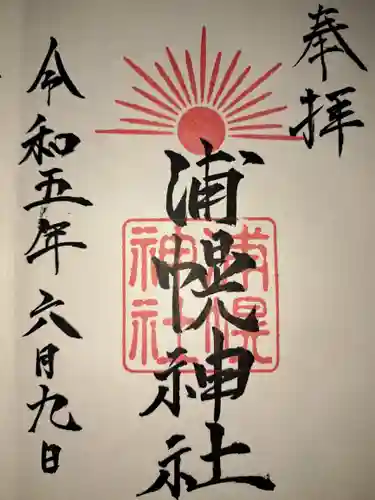 奉拝
浦幌神社
浦幌
神社
令和五年六月九日